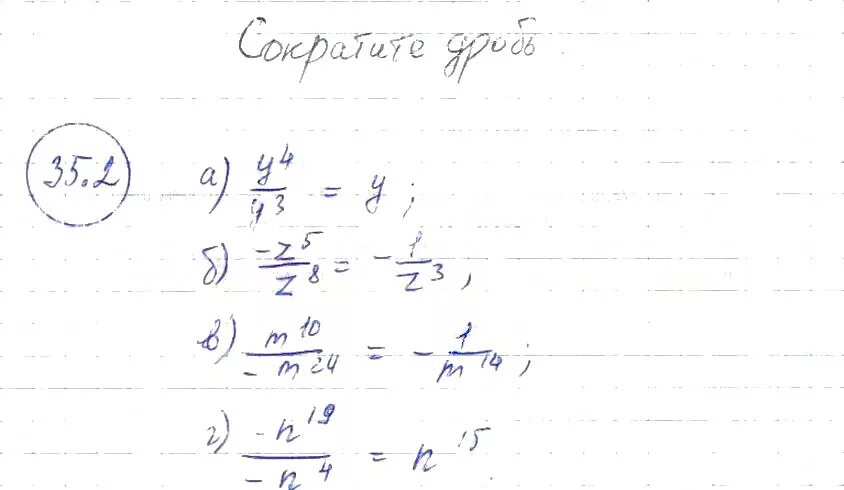 Сократите дробь
35.2 а) y⁴/y³ = y;
б) -z⁵/z⁸ = -1/z³,
в) m¹⁰/-m²⁴ = -1/m¹⁴;
г) -n¹⁹/-n⁴ = n¹⁵